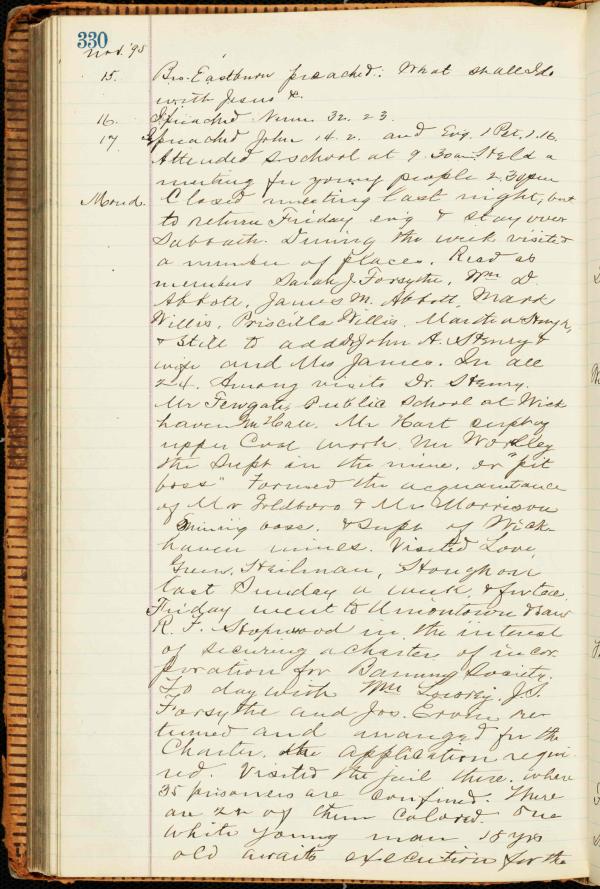 330
Nov. '95
15. Bro. Eastburn preached. What shall I do
with Jesus &c.
16. I preached Num. 32. 23.
17 I preached John 14. 2. and Evg. 1 Pet. 1. 16.
Attended S school at 9.30 am. Held a
meeting for young people 2.30 pm
Mond. Closed meeting last night, but
to return Friday evg & stay over
Sabbath. During the week visited
a number of places. Read as
members Sarah J. Forsythe, Wm D.
Abbott, James M. Abbott, Mark
Willis, Priscilla Willis, Martha
& still to add John A. Henry &
wife and Mrs James. In all
24. Among visits Dr. S Henry.
Mr Public School at Wick
haven Mr Hall. Mr Hart supt of
upper Coal work. Mr Worlley
the Supt in the mine, or "pit
boss" Formed the acquaintance
of Mr & Mr Morrison
mining boss. & Supt of Wick-
haven mines. Visited Love,
Green, Heilman,
last Sunday a week,
Friday went to Uniontown & saw
R. F. Hopwood in the interest
of securing a charter of incor
poration for Banning Society.
To day with Wm J. S.
Forsythe and Jos. re-
turned and arranged for the
Charter. the application requi
red. Visited the jail there. where
35 prisoners are confined. There
are 22 of them colored. One
white young man 18 yrs
old awaits execution for the